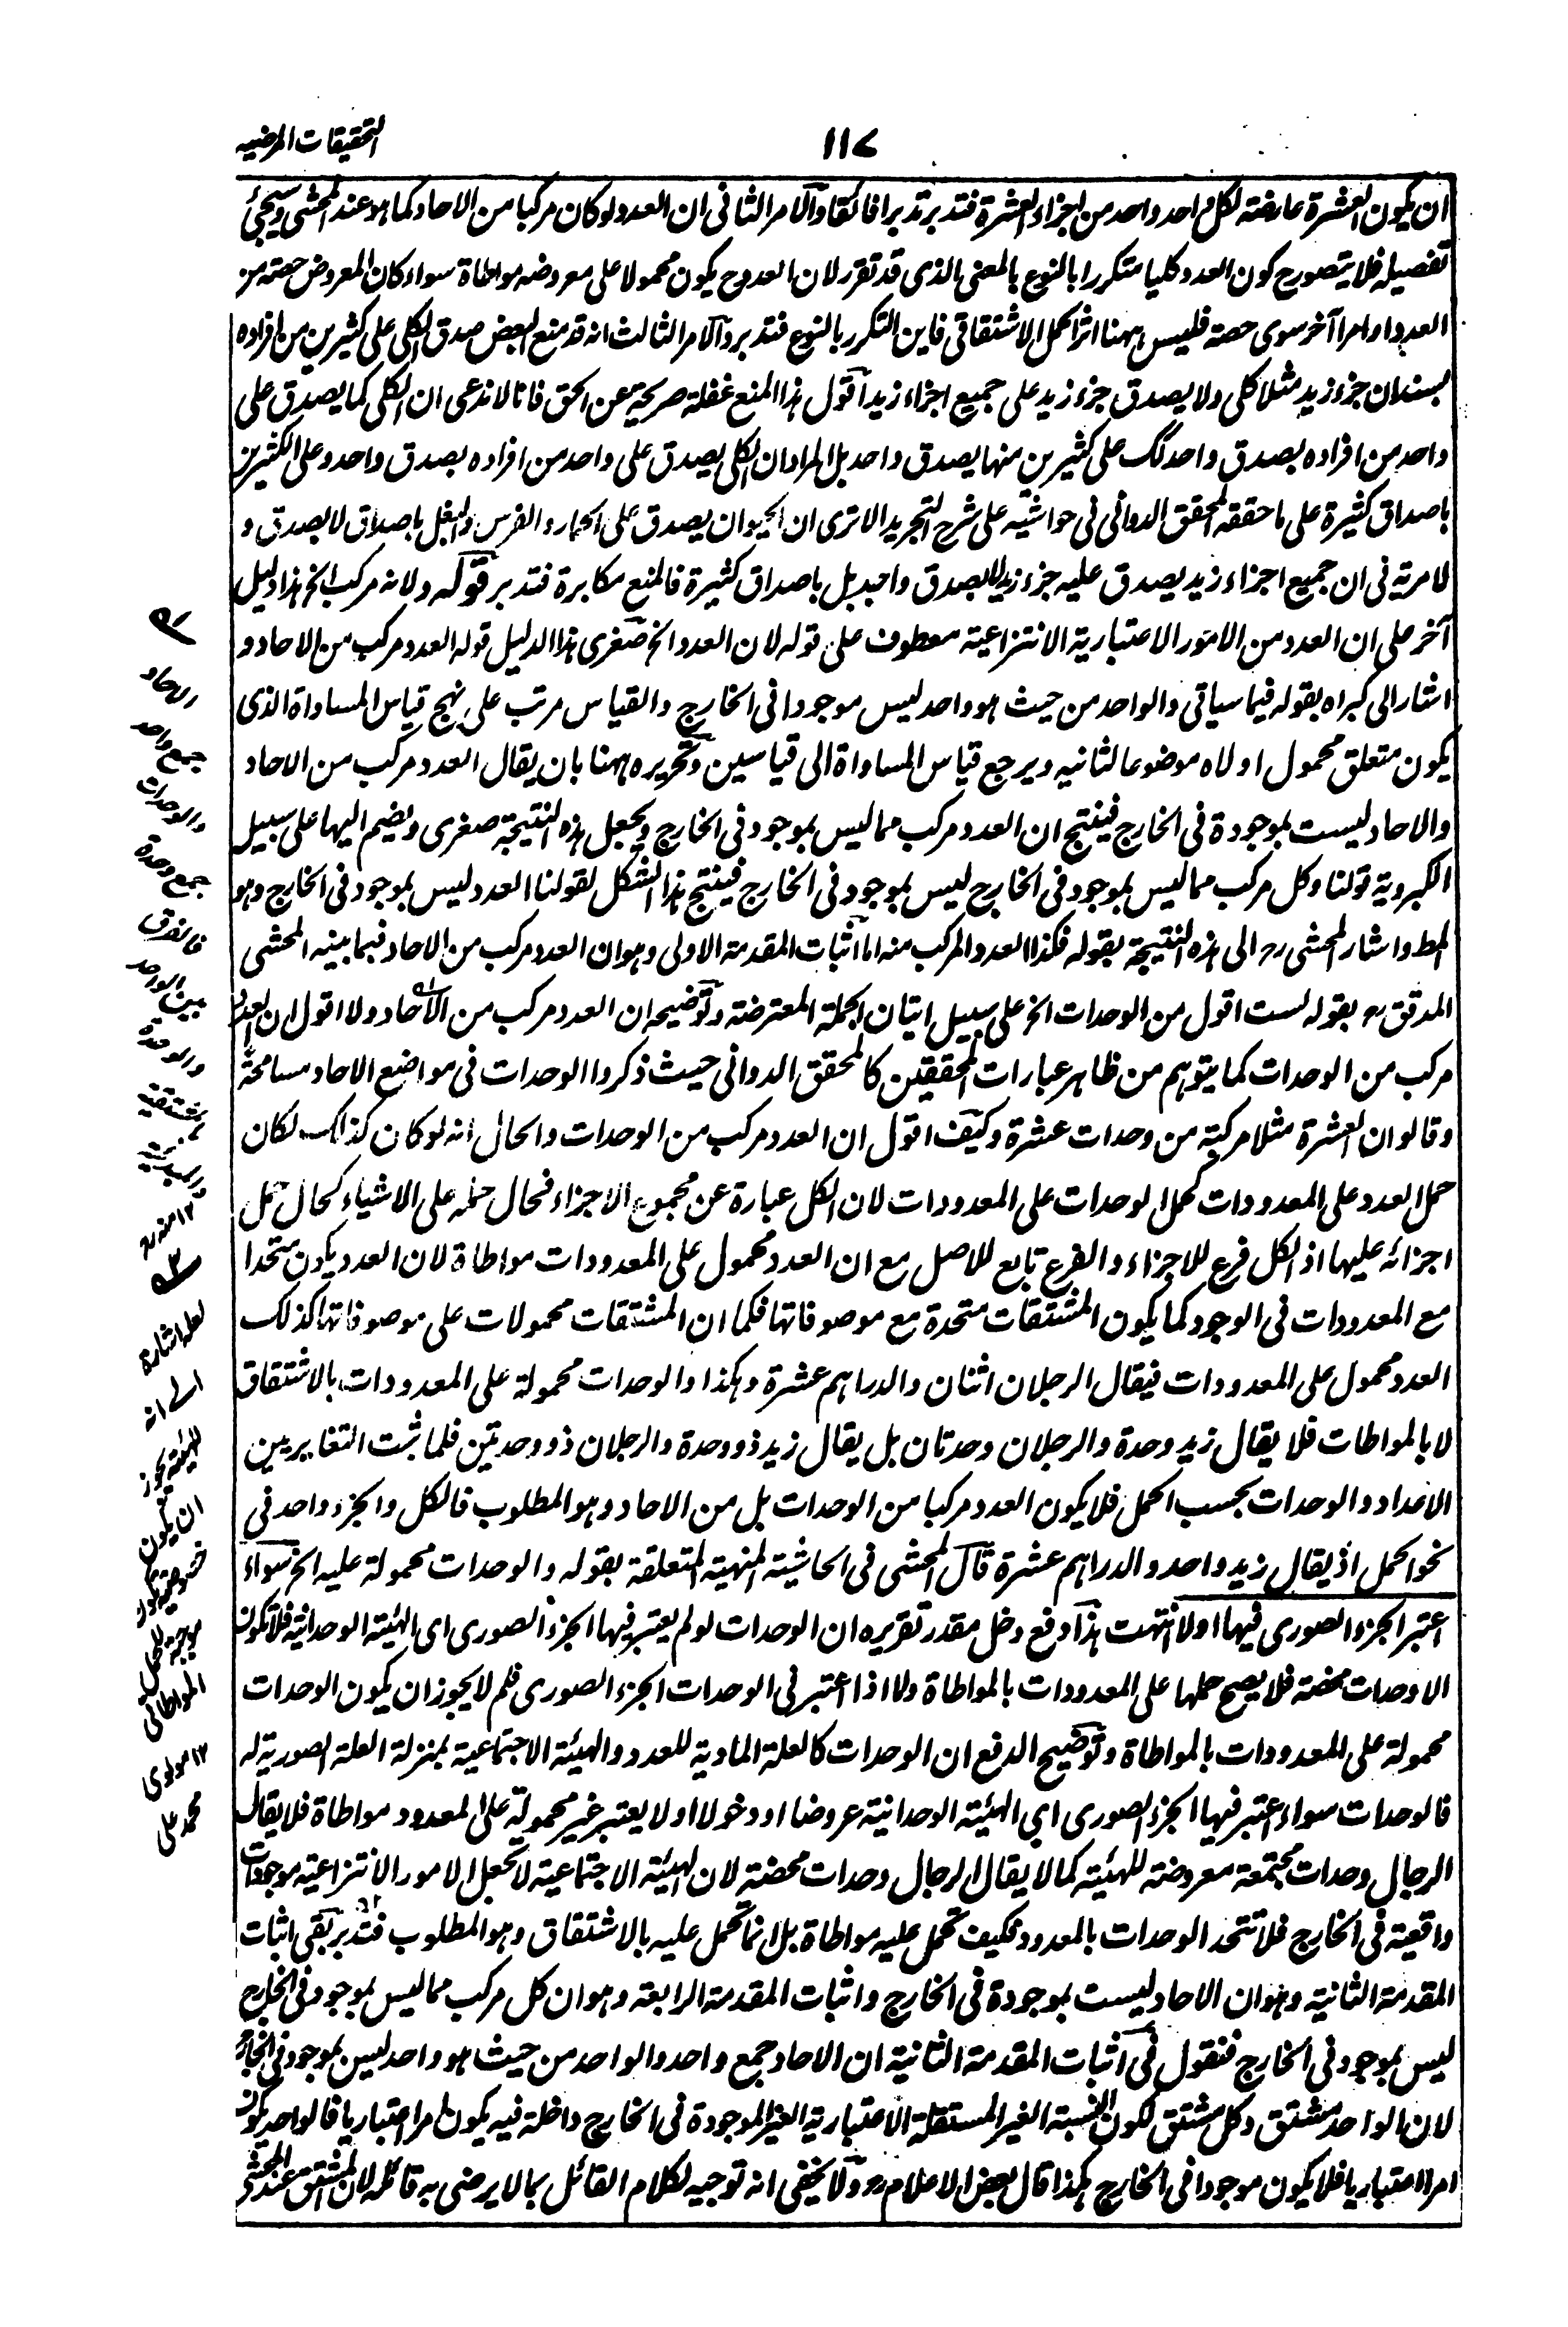 التحقيقات المرضيه
١١٧
ان يكون العشرة عارضته لكل واحد واحد من اجزاء العشرة فتدبر تدبرا فائقا والامر الثانى ان العدد لو كان مركبا من الاحاد كما هو عند المحشى وسيجئ
تفصيله فلا يتصورح كون العدد كليا متكررا بالنوع بالمعنى الذى قد تقرر لان العددح يكون محمولا على معروضه مواطاة سواء كان المعروض حصته من
العدد او امرا آخر سوى حصته فليس ههنا اثر الحمل الاشتقاقى فاين التكرر بالنوع فتدبر والامر الثالث انه قد منع البعض صدق الكلى على كثيرين من افراده
بسندان جزء زيد مثلا كلى ولا يصدق جزء زيد على جميع اجزاء زيد اقول هذا المنع غفلة صريحة عن الحق فانا لا ندعى ان الكلى كما يصدق على
واحد من افراده بصدق واحد كك على كثيرين منها يصدق واحد بل المراد ان الكلى يصدق على واحد من افراده بصدق واحد وعلى الكثيرين
باصداق كثيرة على ما حققه المحقق الدوانى فى حواشيه على شرح التجريد الا ترى ان الحيوان يصدق على الحمار والفرس والبغل باصداق لا بصدق و
لا مرية فى ان جميع اجزاء زيد يصدق عليه جزء زيد لا بصدق واحد بل باصداق كثيرة فالمنع مكابرة فتدبر قوله ولانه مركب الخ هذا دليل
آخر على ان العدد من الامور الاعتبارية الانتزاعية معطوف على قوله لان العدد الخ صغرى هذا الدليل قوله العدد مركب من الاحاد و
اشار الى كبراه بقوله فيما سياتى والواحد من حيث هو واحد ليس موجودا فى الخارج والقياس مرتب على نهج قياس المساواة الذى
يكون متعلق محمول اولاه موضوعا لثانيه ويرجع قياس المساواة الى قياسين وتحريره ههنا بان يقال العدد مركب من الاحاد
والاحاد ليست بموجودة فى الخارج فينتج ان العدد مركب مما ليس بموجود فى الخارج ويجعل هذه النتيجة صغرى ويضم اليها على سبيل
الكبروية قولنا وكل مركب مما ليس بموجود فى الخارج ليس بموجود فى الخارج فينتج هذا الشكل لقولنا العدد ليس بموجود فى الخارج وهو
المط واشار المحشى رح الى هذه النتيجة بقوله فكذا العدد المركب منه اما اثبات المقدمة الاولى وهو ان العدد مركب من الاحاد فبما بينه المحشى
المدقق رح بقوله لست اقول من الوحدات الخ على سبيل اتيان الجملة المعترضة وتوضيحه ان العدد مركب من الاحاد ولا اقول ان العدد
مركب من الوحدات كما يتوهم من ظاهر عبارات المحققين كالمحقق الدوانى حيث ذكروا الوحدات فى مواضع الاحاد مسامحة
وقالوا ان العشرة مثلا مركبة من وحدات عشرة وكيف اقول ان العدد مركب من الوحدات والحال انه لو كان كذلك لكان
حمل العدد على المعدودات كحمل الوحدات على المعدودات لان الكل عبارة عن مجموع الاجزاء فحال حمله على الاشياء كحال حمل
اجزائه عليها اذ الكل فرع للاجزاء والفرع تابع للاصل مع ان العدد محمول على المعدودات مواطاة لان العدد يكون متحدا
مع المعدودات فى الوجود كما يكون المشتقات متحدة مع موصوفاتها فكما ان المشتقات محمولات على موصوفاتها كذلك
العدد محمول على المعدودات فيقال الرجلان اثنان والدراهم عشرة وهكذا والوحدات محمولة على المعدودات بالاشتقاق
لا بالمواطات فلا يقال زيد وحدة والرجلان وحدتان بل يقال زيد ذو وحدة والرجلان ذو وحدتين فلما ثبت التغاير بين
الاعداد والوحدات بحسب الحمل فلا يكون العدد مركبا من الوحدات بل من الاحاد وهو المطلوب فالكل والجزء واحد فى
نحو الحمل اذ يقال زيد واحد والدراهم عشرة قال المحشى فى الحاشية المنهية المتعلقة بقوله والوحدات محمولة عليه الخ سواء
اعتبر الجزء الصورى فيها اولا انتهت هذا دفع دخل مقدر تقريره ان الوحدات لو لم يعتبر فيها الجزء الصورى اى الهيئة الوحدانية فلا تكون
الا وحدات محضة فلا يصح حملها على المعدودات بالمواطاة ولما اذا اعتبر فى الوحدات الجزء الصورى فلم لا يجوز ان يكون الوحدات
محمولة على المعدودات بالمواطاة وتوضيح الدفع ان الوحدات كالعلة المادية للعدد والهيئة الاجتماعية بمنزلة العلة الصورية له
فالوحدات سواء اعتبر فيها الجزء الصورى اى الهيئة الوحدانية عروضا او دخولا او لا يعتبر غير محمولة على المعدود مواطاة فلا يقال
الرجال وحدات مجتمعة معروضة للهيئة كما لا يقال الرجال وحدات محضة لان الهيئة الاجتماعية لا تجعل الامور الانتزاعية موجودات
واقعية فى الخارج فلا تتحد الوحدات بالمعدود فكيف تحمل عليه مواطاة بل انما تحمل عليه بالاشتقاق وهو المطلوب فتدبر بقى اثبات
المقدمة الثانية وهو ان الاحاد ليست بموجودة فى الخارج واثبات المقدمة الرابعة وهو ان كل مركب مما ليس بموجود فى الخارج
ليس بموجود فى الخارج فنقول فى اثبات المقدمة الثانية ان الاحاد جمع واحد والواحد من حيث هو واحد ليس بموجود فى الخارج
لان الواحد مشتق وكل مشتق لكون النسبة الغير المستقلة الاعتبارية الغير الموجودة فى الخارج داخلة فيه يكون امرا اعتباريا فالواحد يكون
امرا اعتباريا فلا يكون موجودا فى الخارج هكذا قال بعض الاعلام رح ولا يخفى انه توجيه لكلام القائل بما لا يرضى به قائله لان المشتق عند المحشى
الاحاد
جمع واحد
والوحدات
جمع وحدة
فالفرق
بين الواحد
والوحدة
١٢ منه رح
لعله اشارة
الى انه
ان يكون
موجبة للحمل
المواطاتى
١٢ مولوى
محمد على